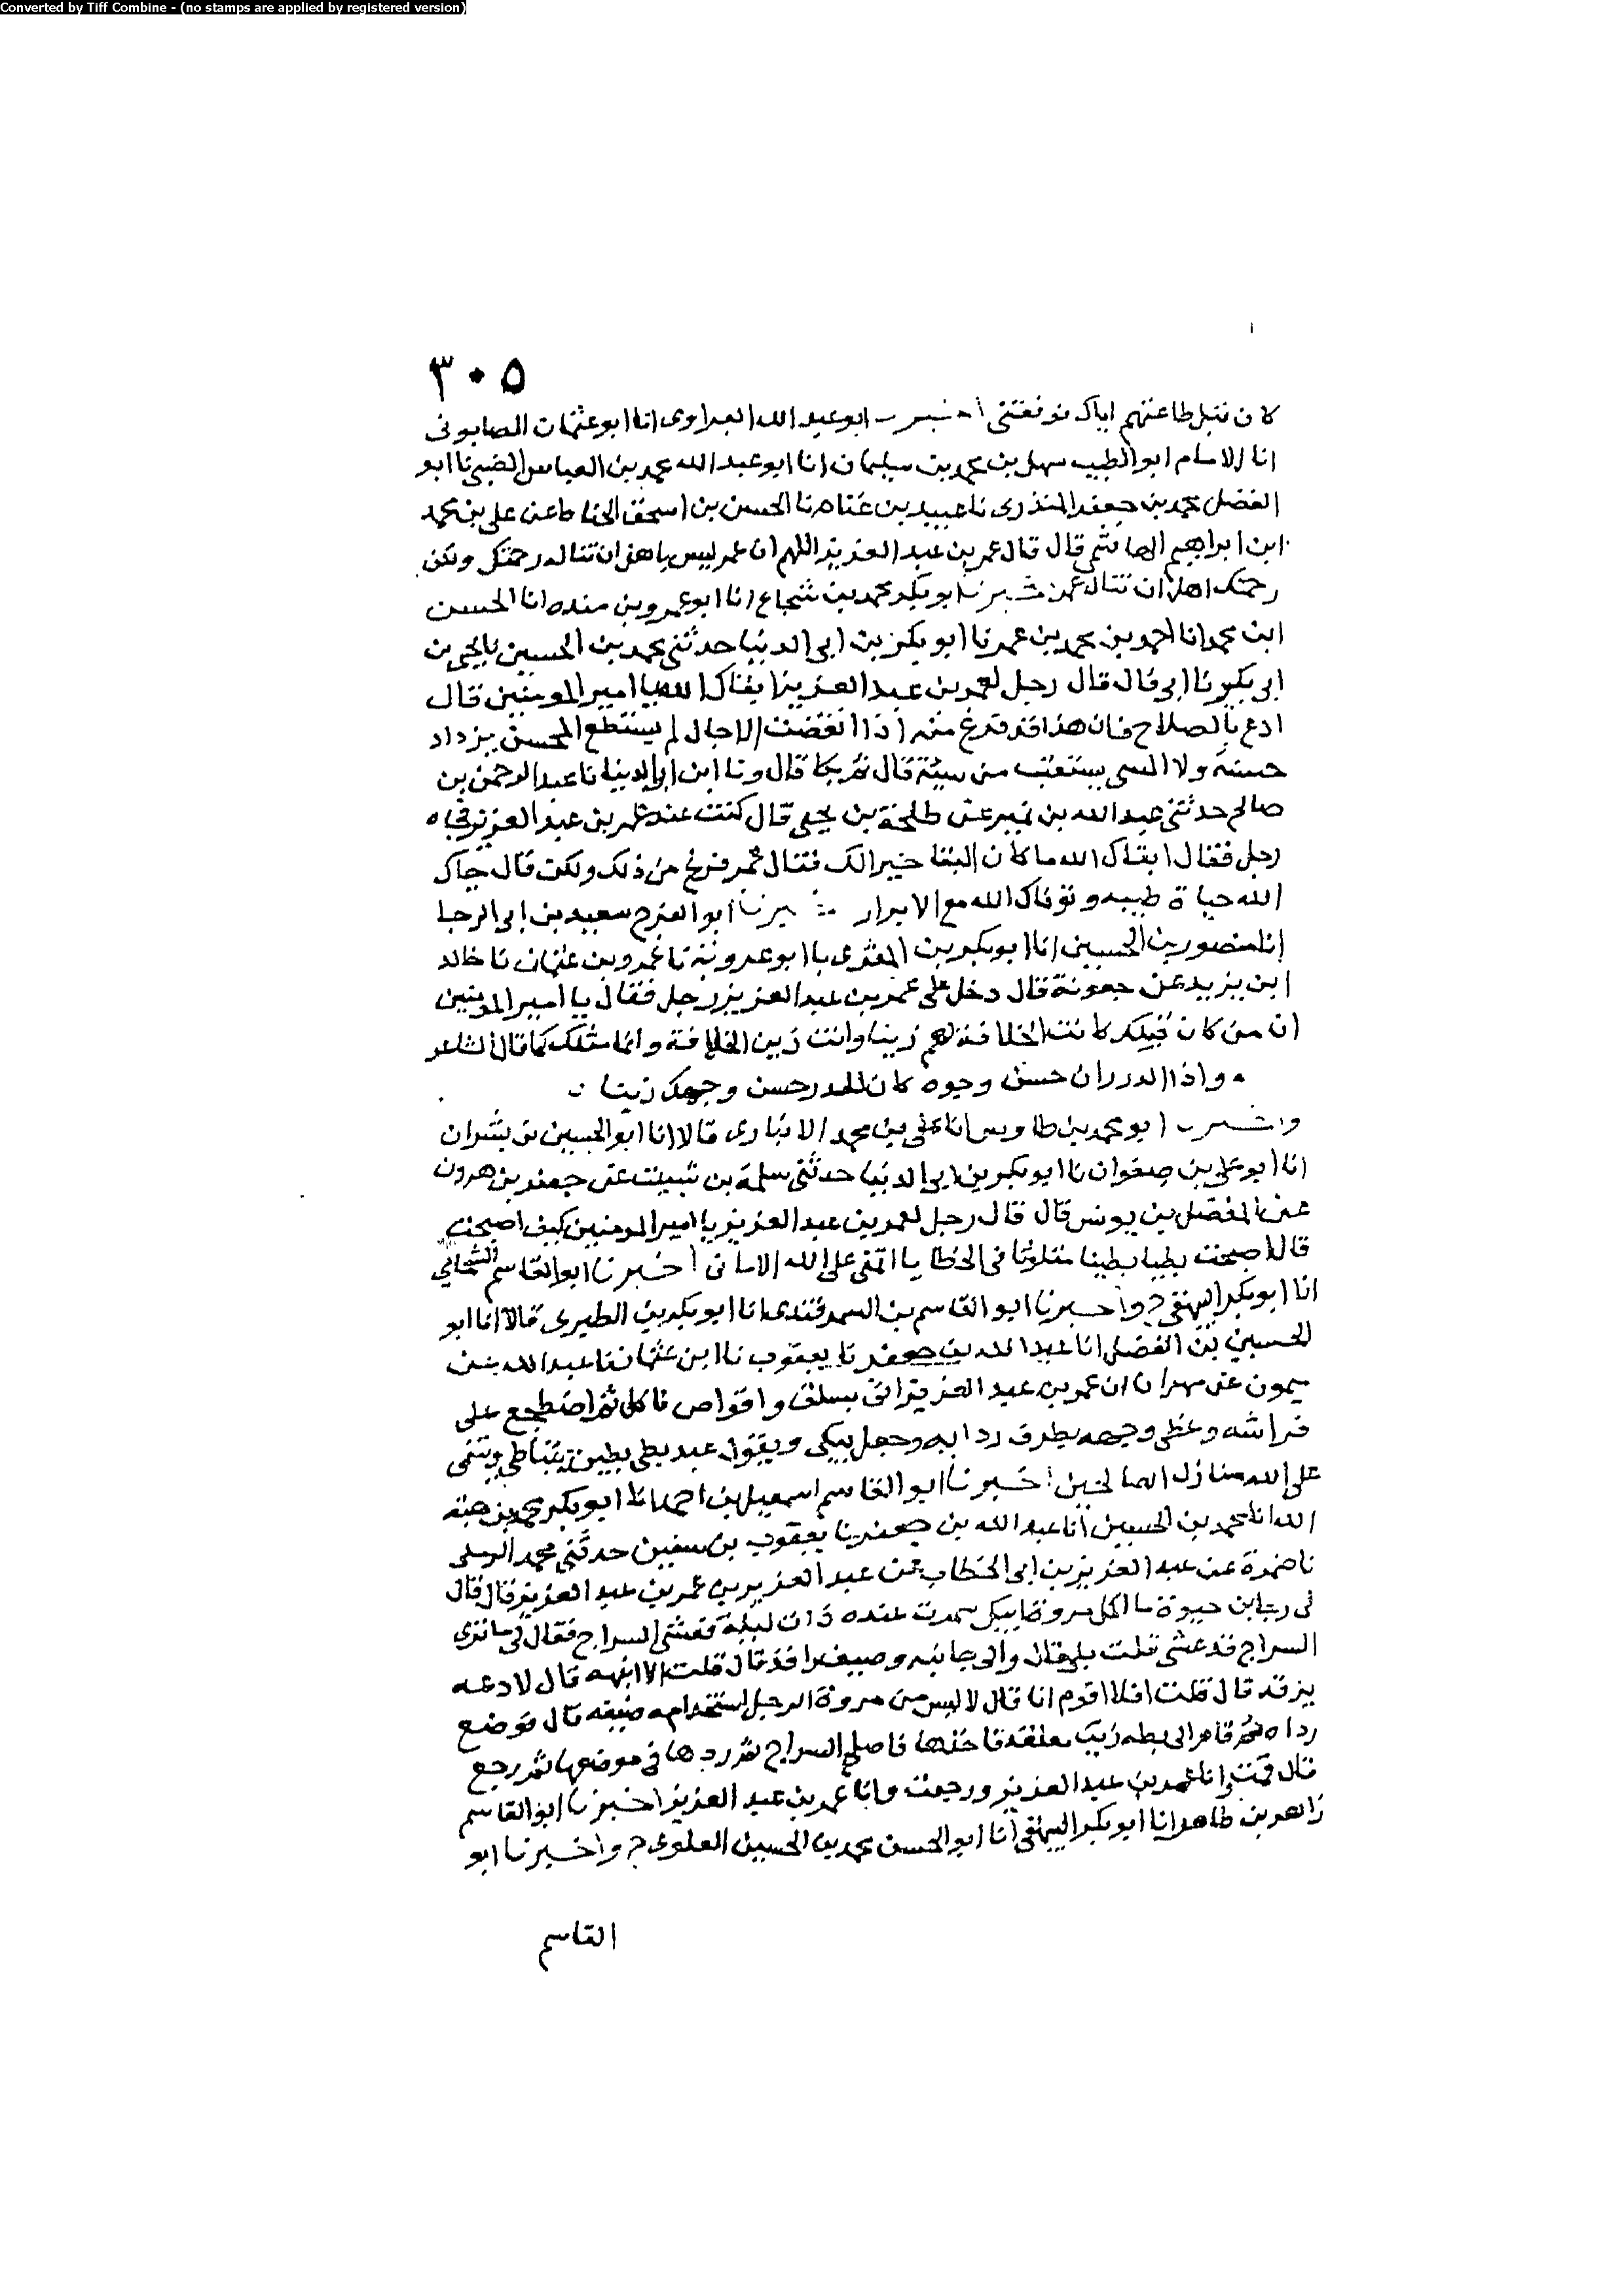 Converted by Tiff Combine - (no stamps are applied by registered version)
٣٠٥
كان قبل طاعتهم اياك توفقتنى اخبر ابو عبد الله الفراوى انا ابو عثمان الصابونى
انا الامام ابو الطيب سهل بن محمد بن سليمان انا ابو عبد الله محمد بن العباس الضبى نا ابو
الفضل محمد بن جعفر المنذرى نا عبيد بن غنام نا الحسن بن اسحق الخياط عن على بن محمد
ابن ابراهيم الهاشمى قال قال عمر بن عبد العزيز اللهم ان عمر ليس باهل ان تناله رحمتك ولكن
رحمتك اهل ان تنال عمر اخبرنا ابو بكر محمد بن شجاع انا ابو عمرو بن منده انا الحسن
ابن محمد انا احمد بن محمد بن عمر نا ابو بكر بن ابى الدنيا حدثنى محمد بن الحسين نا يحيى بن
ابى بكير نا ابى قال قال رجل لعمر بن عبد العزيز ابقاك الله يا امير المومنين قال
ادع بالصلاح فان هذا قد فرغ منه اذا انقضت الاجال لم يستطع المحسن يزداد
حسنة ولا المسى يستعتب من سيئة قال ثم بكا قال ونا ابن ابى الدنيا نا عبد الرحمن بن
صالح حدثنى عبد الله بن نمير عن طلحة بن يحيى قال كنت عند عمر بن عبد العزيز فجاه
رجل فقال ابقاك الله ما كان البقا خيرا لك فقال عمر فرغ من ذلك ولكن قال حياك
الله حياة طيبه وتوفاك الله مع الابرار اخبرنا ابو الفرج سعيد بن ابى الرجا
انا منصور بن الحسين انا ابو بكر بن المقرى نا ابو عروبة نا عمرو بن عثمان نا خالد
ابن يزيد عن جعونة قال دخل على عمر بن عبد العزيز رجل فقال يا امير المومنين
ان من كان قبلك كانت الخلافة لهم زينا وانت زين الخلافة وانما مثلك كما قال الشاعر
واذا الدر زان حسن وجوه كان للدر حسن وجهك زينا
واخبر ابو محمد بن طاوس انا على بن محمد الانبارى قالا انا ابو الحسين بن بشران
انا ابو على بن صفوان نا ابو بكر بن ابى الدنيا حدثنى سلمة بن شبيب عن جعفر بن هرون
عن المفضل بن يونس قال قال رجل لعمر بن عبد العزيز يا امير المومنين كيف اصبحت
قال اصبحت بطيا بطينا متلوثا فى الخطايا اتمنى على الله الامانى اخبرنا ابو القاسم الشحامي
انا ابو بكر البيهقى ح واخبرنا ابو القاسم بن السمرقندى انا ابو بكر بن الطبرى قالا انا ابو
الحسين بن الفضل انا عبد الله بن جعفر نا يعقوب نا ابن عثمان نا عبد الله عن
ميمون عن مهران ان عمر بن عبد العزيز اتى بسلق واقراص فاكل ثم اضطجع على
فراشه وغطى وجهه بطرف ردايه وجعل يبكى ويقول عبد بطى بطين يتباطى ويتمنى
على الله منازل الصالحين اخبرنا ابو القاسم اسمعيل بن احمد انا ابو بكر محمد بن هبة
الله انا محمد بن الحسين انا عبد الله بن جعفر نا يعقوب بن سفين حدثنى محمد الرملى
نا ضمرة عن عبد العزيز بن ابى الخطاب عن عبد العزيز بن عمر بن عبد العزيز قال قال
لى رجا بن حيوة ما اكمل مروة ابيك سمرت عنده ذات ليلة فعشى السراج فقال لى ما ترى
السراج قد عشى قلت بلى قال والى جانبه وصيف راقد قال قلت الا انبهه قال لا دعه
يرقد قال قلت افلا اقوم انا قال لا ليس من مروة الرجل استخدامه ضيفه قال فوضع
رداه ثم قام الى بطة زيت معلقة فاخذها فاصلح السراج ثم ردها فى موضعها ثم رجع
قال قمت وانا عمر بن عبد العزيز ورجعت وانا عمر بن عبد العزيز اخبرنا ابو القاسم
زاهر بن طاهر انا ابو بكر البيهقى انا ابو الحسن محمد بن الحسين العلوى ح واخبرنا ابو
القاسم